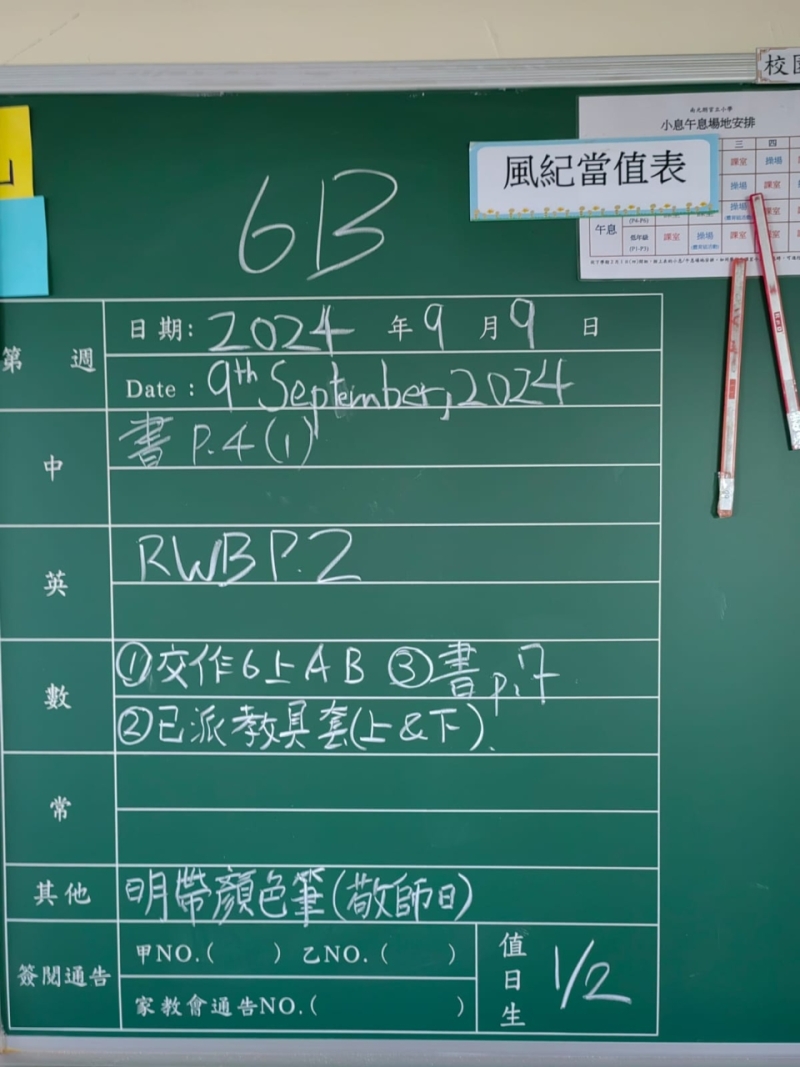 校
小息午息場地安排
三 四
課室 操場
操場 課室
操場
午息 低年級 (P1-P3) 課室 操場 課室
風紀當值表
6B
第 週
日期: 2024 年 9 月 9 日
Date : 9th September, 2024
中
書 P.4 (1)
英
RWB P.2
數
①交作6上AB ③書p.7
②已派教具套(上&下).
常
其他
明帶顏色筆(敬師日)
簽閱通告
甲NO.( ) 乙NO.( )
家教會通告NO.( )
值日生
1/2